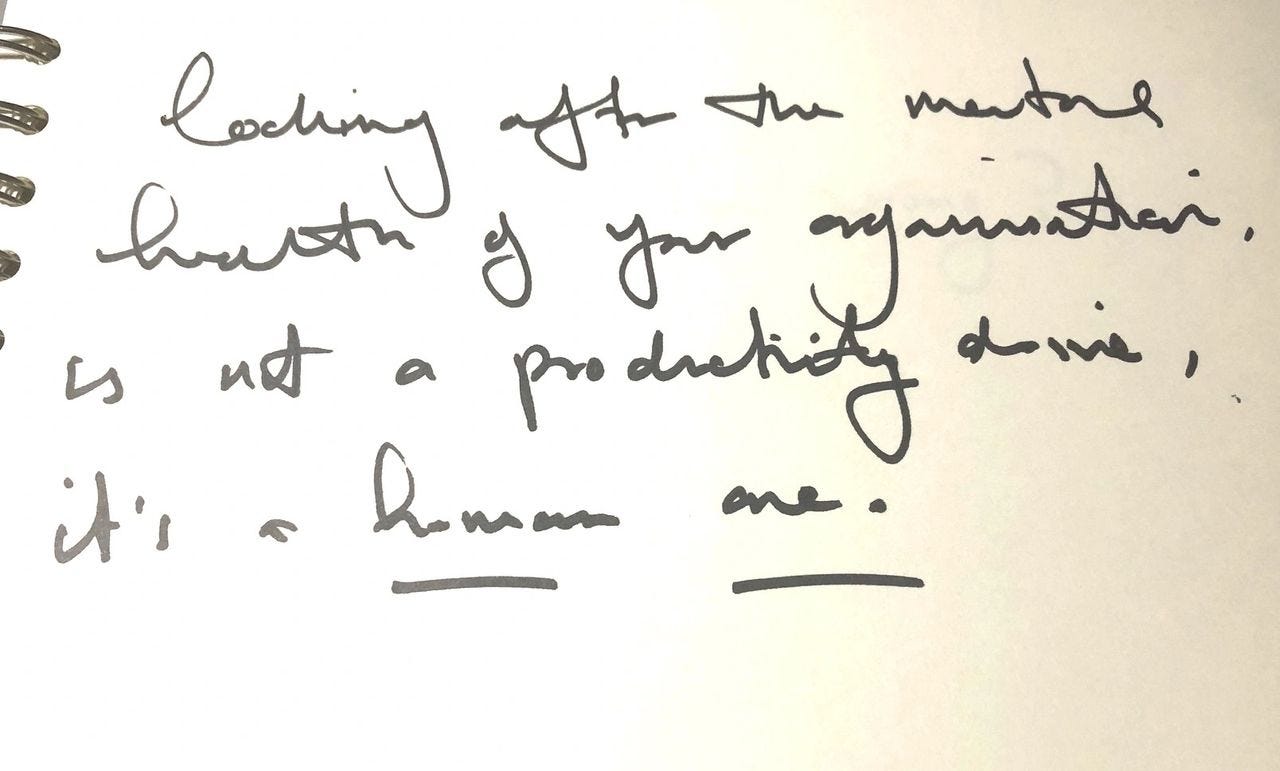 looking after the mental
health of your organisation,
is not a productivity drive,
it's a human one.